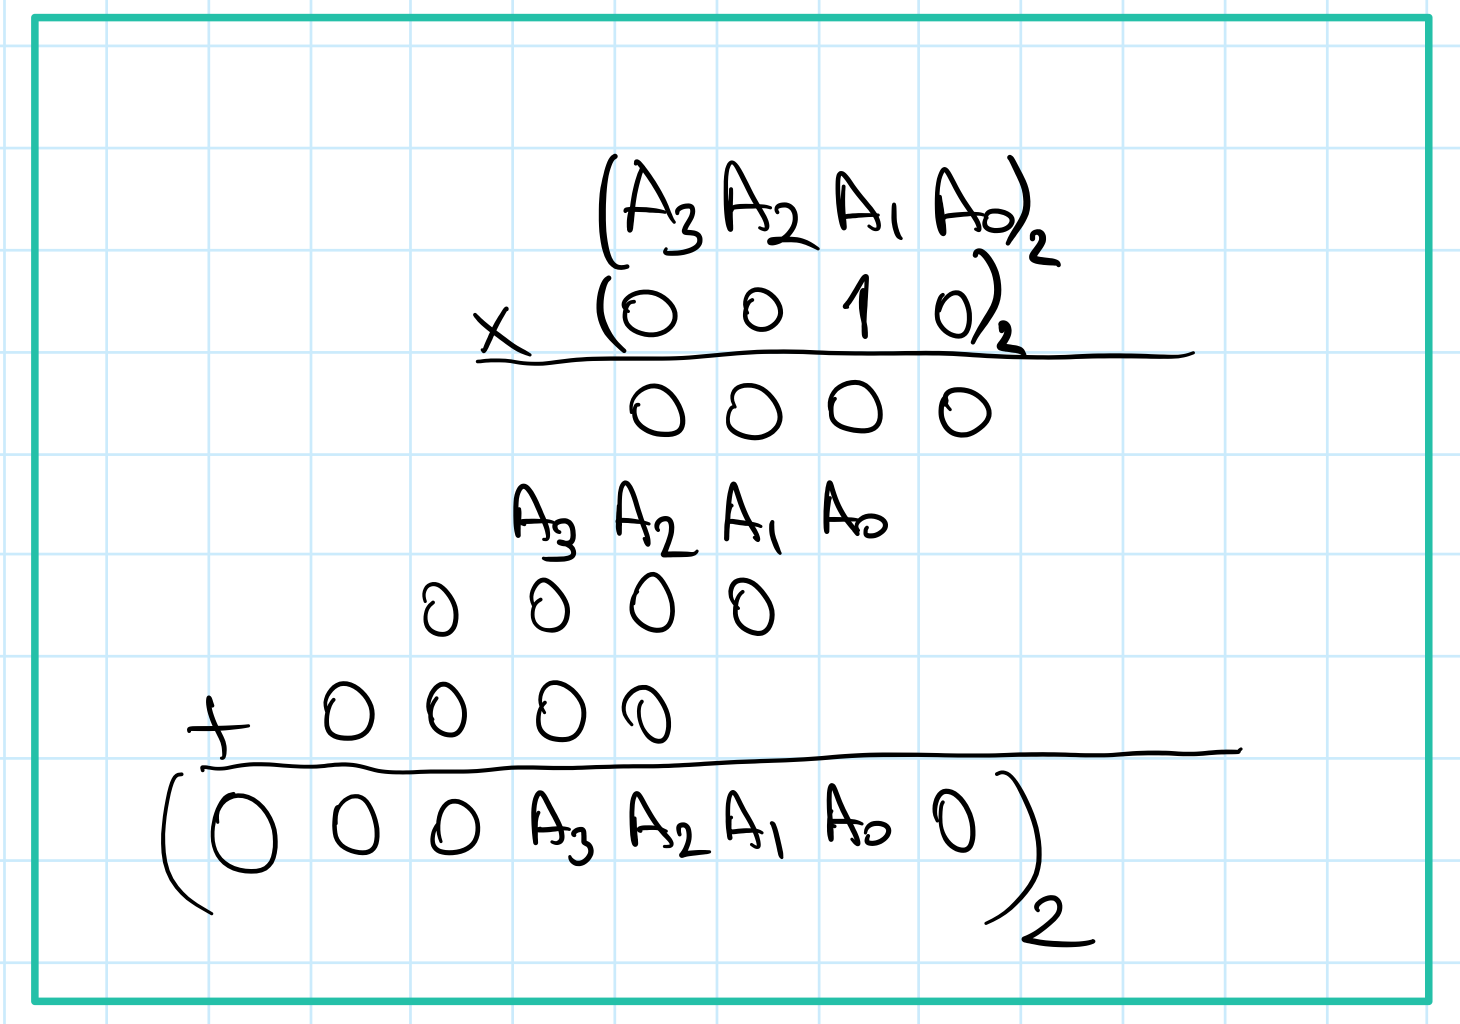 (A₃ A₂ A₁ A₀)₂
× (0 0 1 0)₂
0 0 0 0
A₃ A₂ A₁ A₀
0 0 0 0
+ 0 0 0 0
(0 0 0 A₃ A₂ A₁ A₀ 0)₂